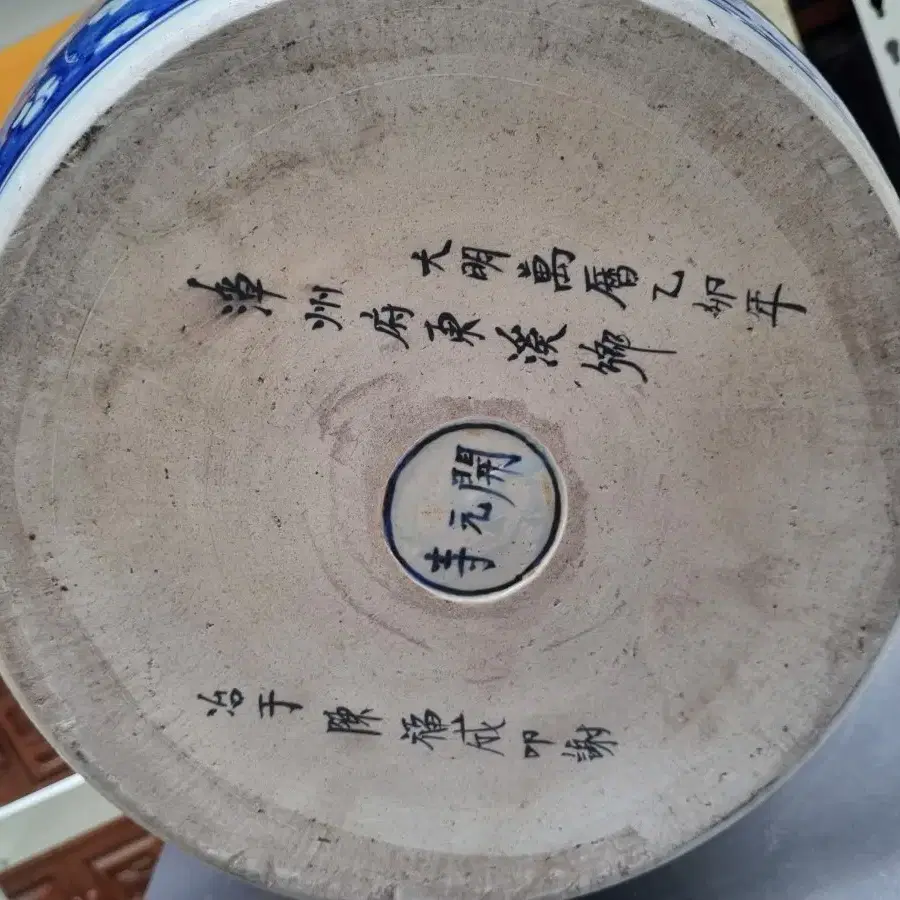 大明萬曆乙卯年
漳州府東溪鄉
開元寺
治于陳福成叩謝